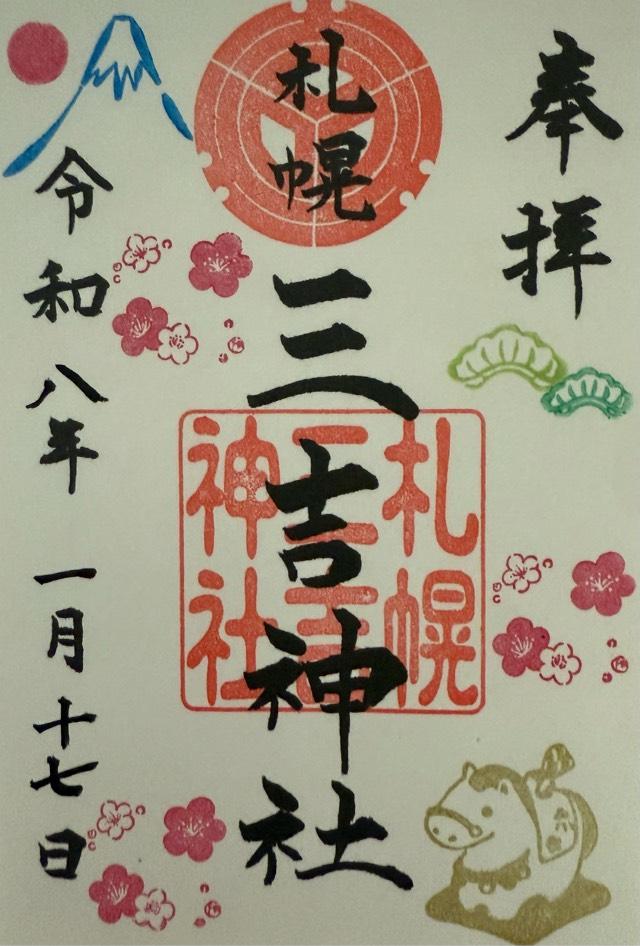 奉拝
札幌三吉神社
札幌
三吉
神社
令和八年 一月十七日